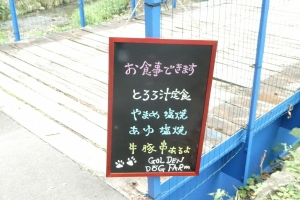 お食事できます
とろろ汁定食
やまめ塩焼
あゆ塩焼
牛豚串あるよ
GOLDEN
DOG FARM